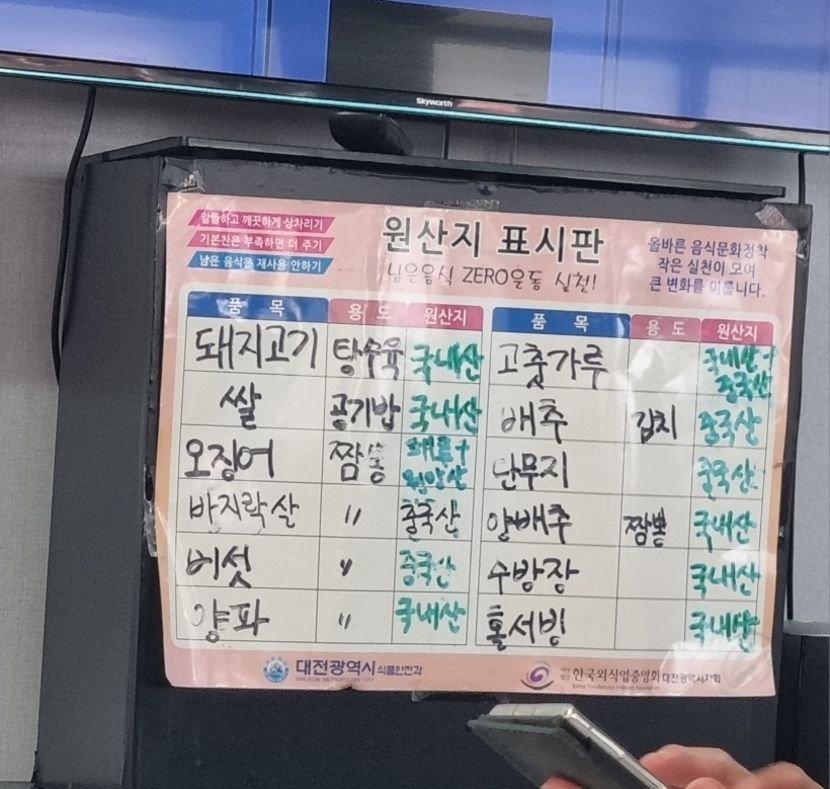 Skyworth
알뜰하고 깨끗하게 상차리기
기본찬은 부족하면 더 주기
남은 음식을 재사용 안하기
원산지 표시판
남은음식 ZERO운동 실천!
올바른 음식문화정착
작은 실천이 모여
큰 변화를 이룹니다.
품 목 용 도 원산지
돼지고기 탕수육 국내산
쌀 공기밥 국내산
오징어 짬뽕 원양산
바지락살 〃 중국산
버섯 〃 중국산
양파 〃 국내산
품 목 용 도 원산지
고춧가루 국내산+중국산
배추 김치 중국산
단무지 중국산
양배추 짬뽕 국내산
수방장 국내산
홀서빙 국내산
대전광역시 식품안전과
DAEJEON METROPOLITAN CITY
한국외식업중앙회 대전광역시지회